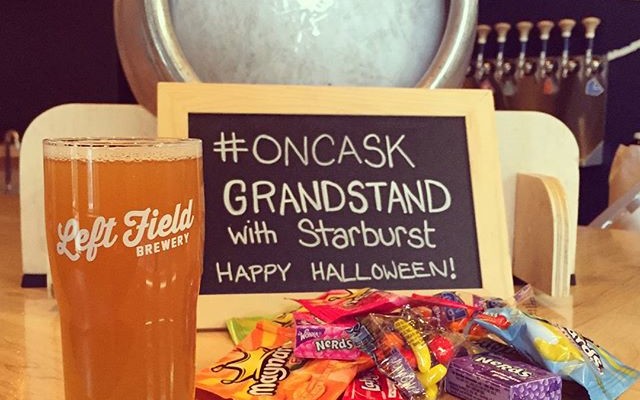 #ONCASK
GRANDSTAND
with Starburst
HAPPY HALLOWEEN!
Left Field
BREWERY
Maynards
WONKA
Nerds
Nerds